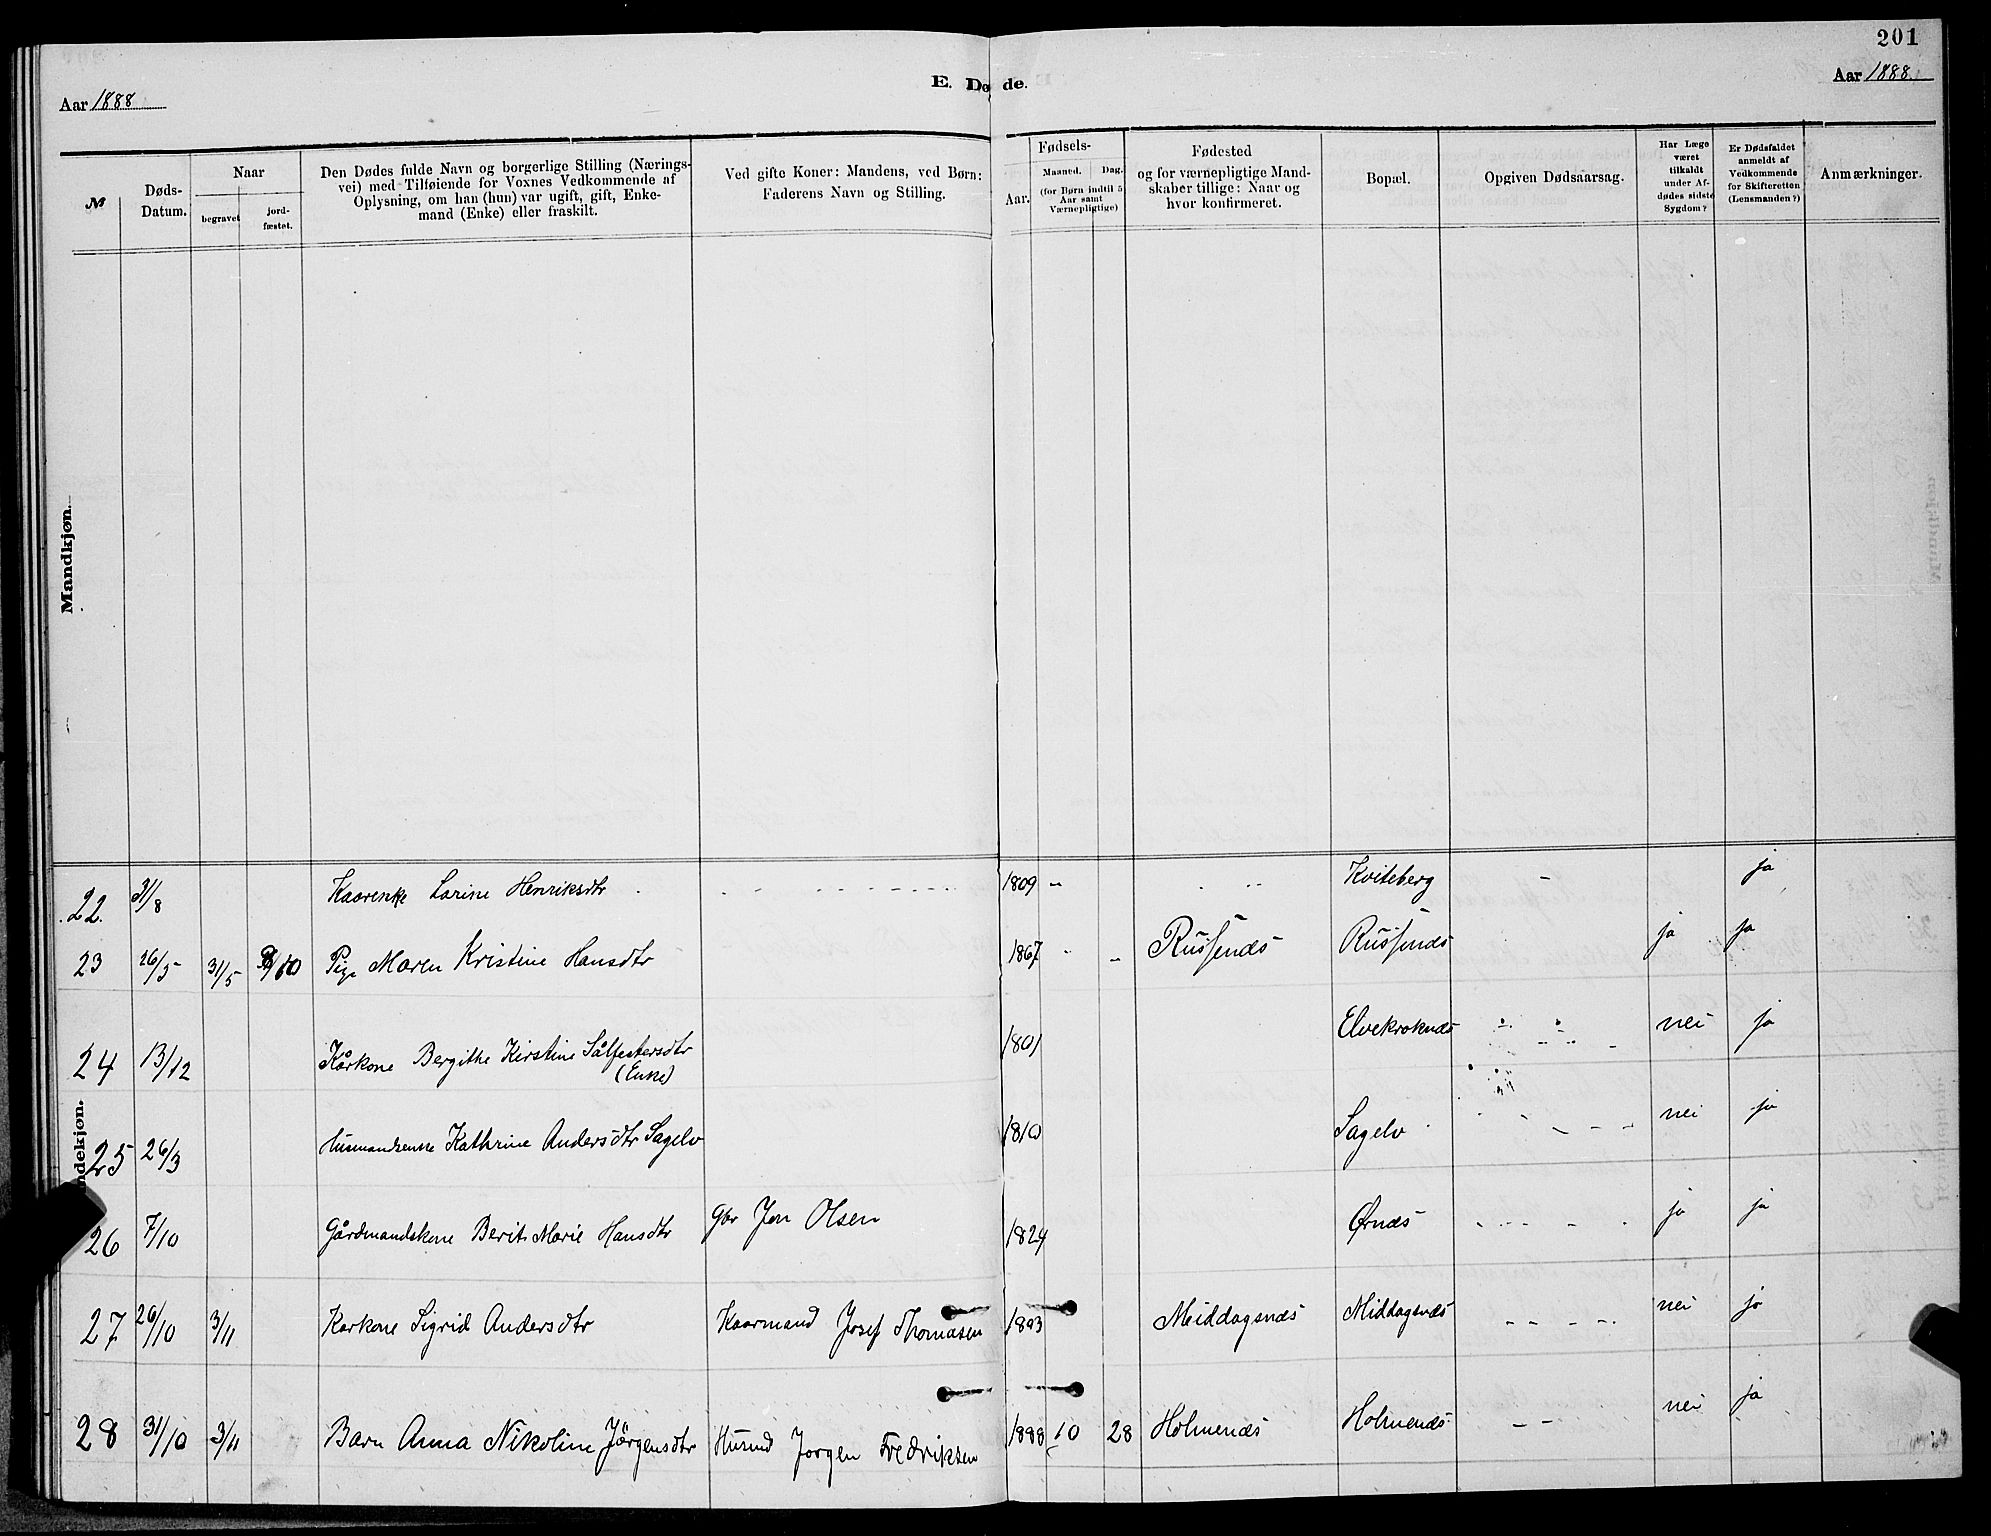 201
Aar 1888
E. Døde.
Aar 1888.
№
Døds-Datum.
Naar
begravet
jord-fæstet.
Den Dødes fulde Navn og borgerlige Stilling (Nærings-
vei) med Tilføiende for Voxnes Vedkommende af
Oplysning, om han (hun) var ugift, gift, Enke-
mand (Enke) eller fraskilt.
Ved gifte Koner: Mandens, ved Børn:
Faderens Navn og Stilling.
Fødsels-
Aar.
Maaned.
Dag.
(for Børn indtil 5
Aar samt
Værnepligtige)
Fødested
og for værnepligtige Mand-
skaber tillige: Naar og
hvor konfirmeret.
Bopæl.
Opgiven Dødsaarsag.
Har Læge
været
tilkaldt
under Af-
dødes sidste
Sygdom?
Er Dødsfaldet
anmeldt af
Vedkommende
for Skifteretten
(Lensmanden?)
Anmærkninger.
Mandkjøn.
22. 31/8 Kaarenke Larine Henriksdtr 1809 Kviteberg ja
23 26/5 31/5 Pige Maren Kristine Hansdtr 1867 Russenæs Russenæs ja ja
24 13/12 Kårkone Bergithe Kirstine Sålfestersdtr 1801 Elvekroknæs nei ja
(Enke)
ndekjøn.
25 26/3 Husmandsenke Kathrine Andersdtr Sagelv 1810 Sagelv nei ja
26 7/10 Gårdmandskone Berit Marie Hansdtr Gbr Jon Olsen 1824 Ørnæs ja ja
27 26/10 3/11 Karkone Sigrid Andersdtr Kaarmand Josef Thomasen Middagsnæs Middagsnæs nei ja
28 31/10 3/11 Barn Anna Nikoline Jörgensdtr Husmd Jorgen Fredriksen 1888 10 28 Holmenæs Holmenæs nei ja